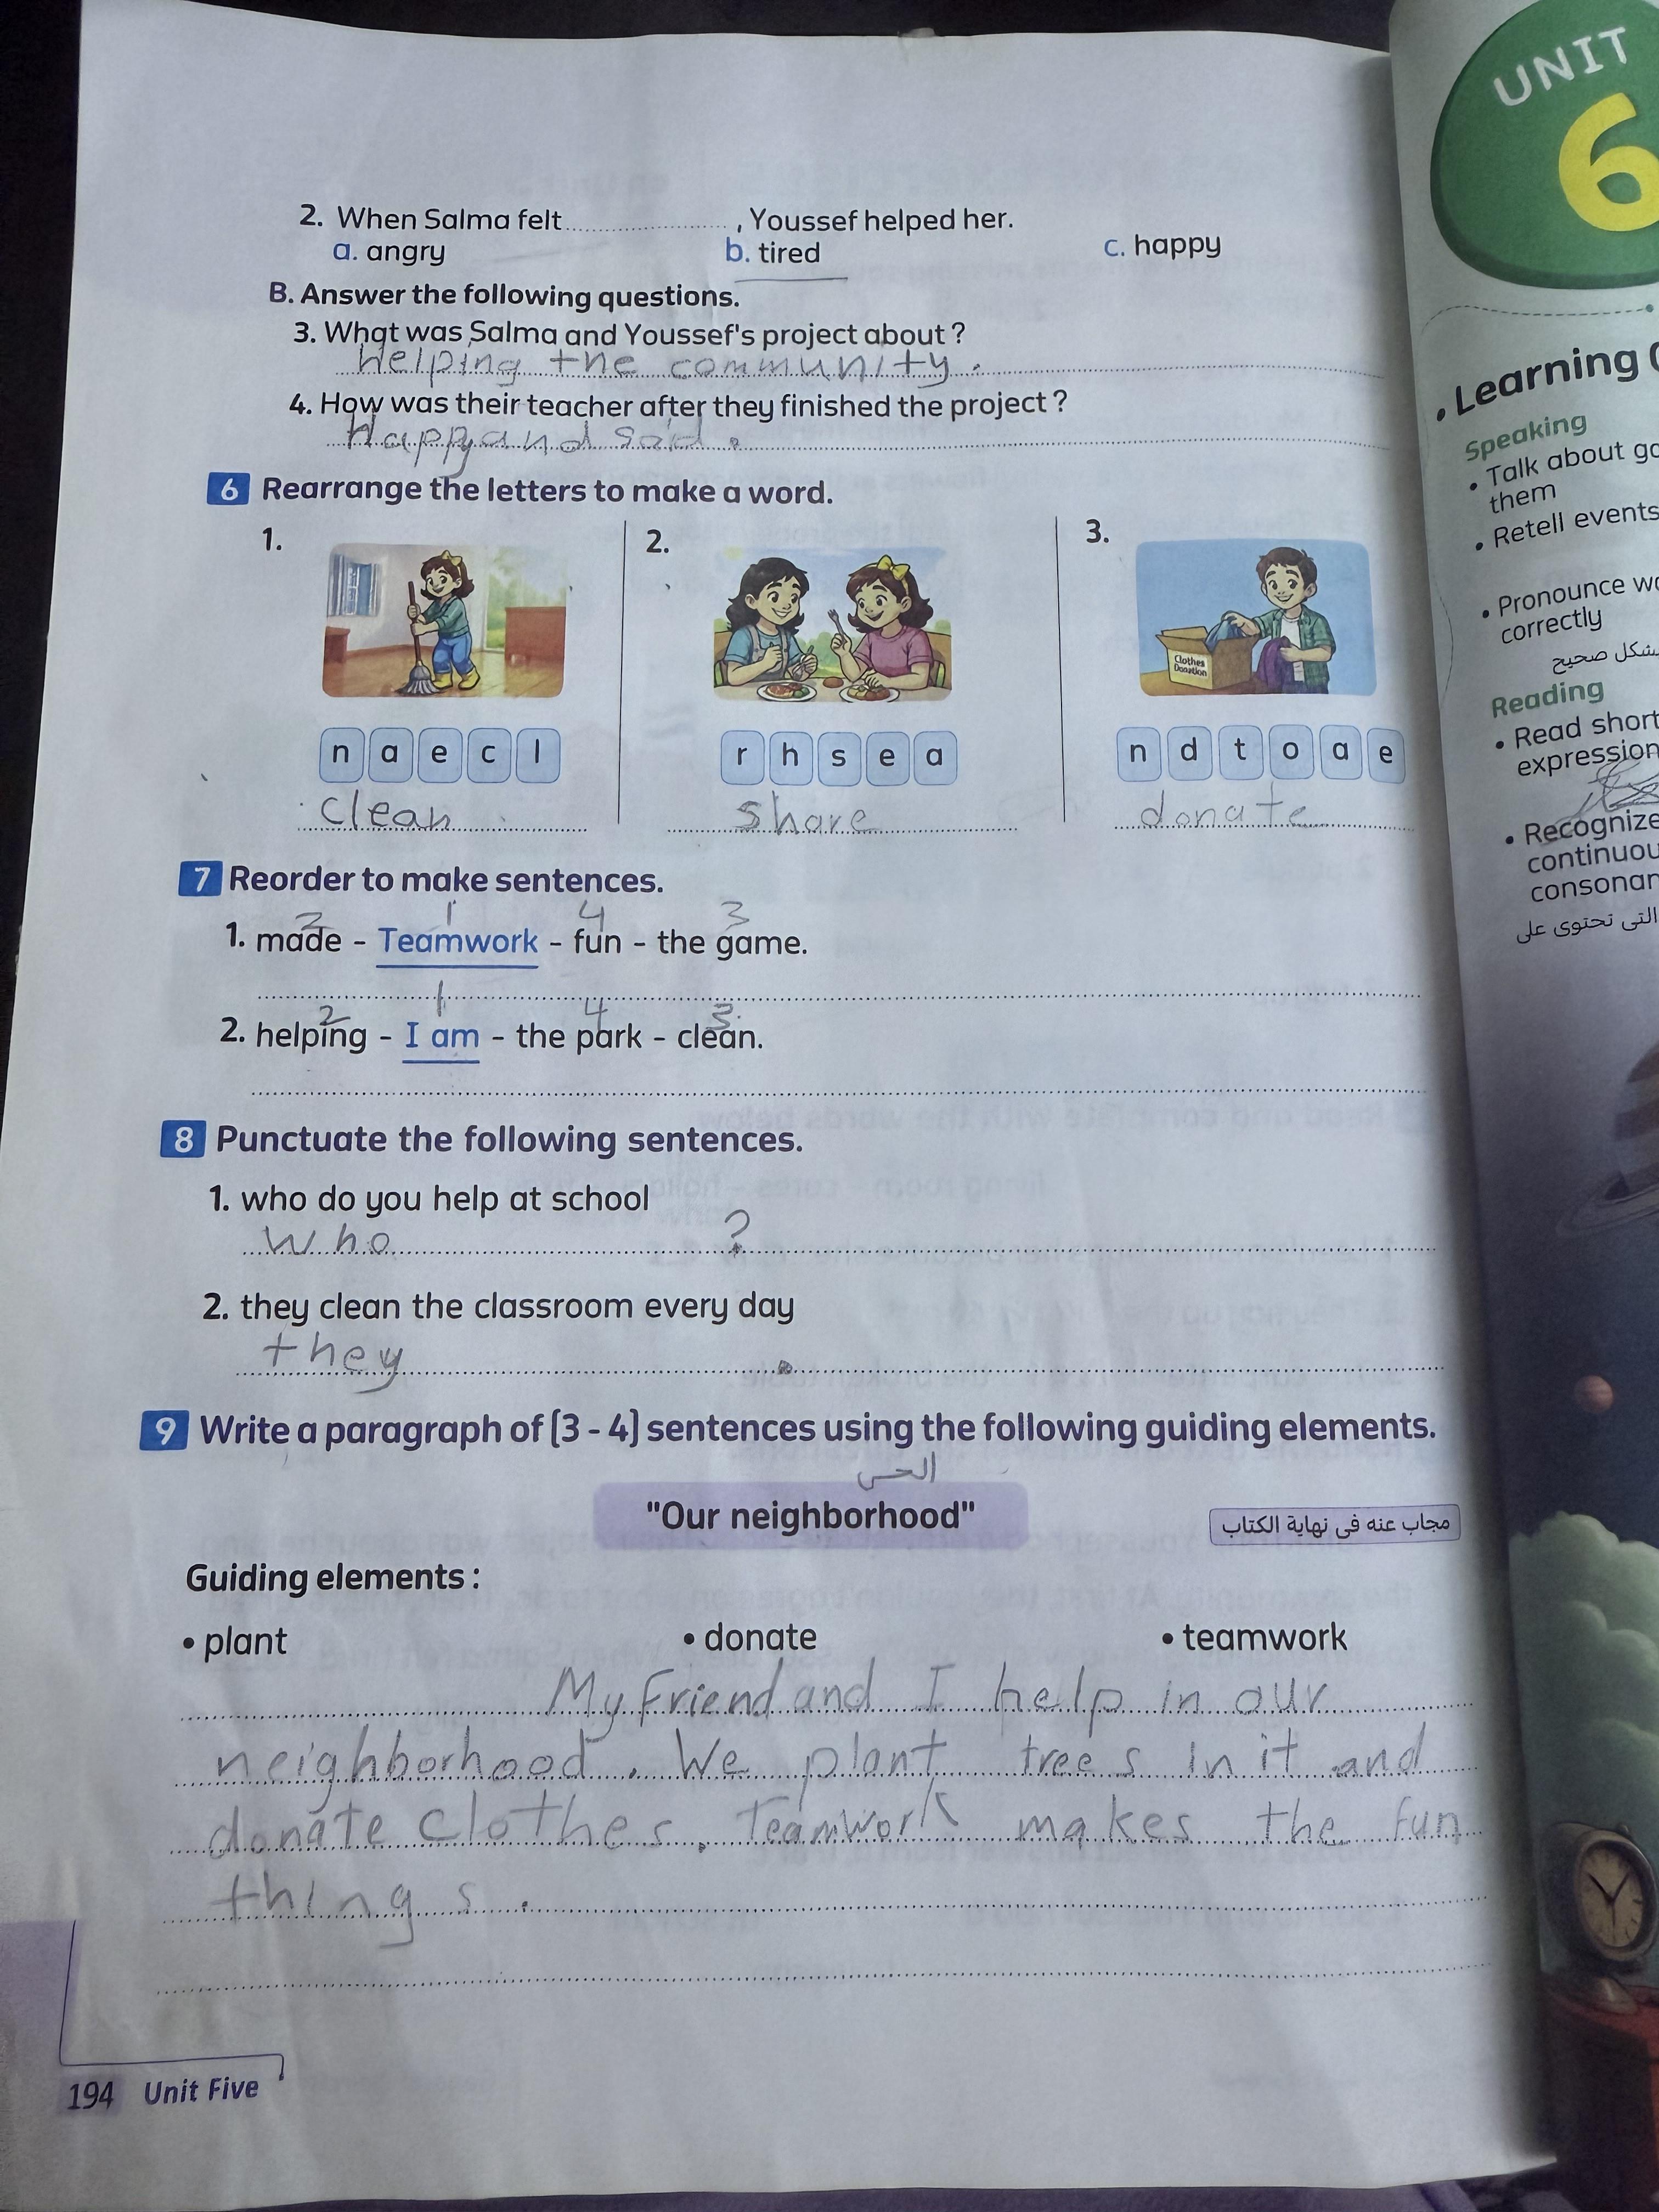 2. When Salma felt ........................ , Youssef helped her.
a. angry b. tired c. happy
B. Answer the following questions.
3. What was Salma and Youssef's project about ?
Helping the community .
4. How was their teacher after they finished the project ?
Happy and said .
6 Rearrange the letters to make a word.
1. 2. 3.
Clothes
Donation
n a e c l r h s e a n d t o a e
clean share donate
7 Reorder to make sentences.
2 1 4 3
1. made - Teamwork - fun - the game.
2 1 4 3
2. helping - I am - the park - clean.
8 Punctuate the following sentences.
1. who do you help at school
Who ?
2. they clean the classroom every day
they .
9 Write a paragraph of (3 - 4) sentences using the following guiding elements.
الحى
"Our neighborhood"
مجاب عنه فى نهاية الكتاب
Guiding elements :
• plant • donate • teamwork
My Friend and I help in our
neighborhood . We plant trees in it and
donate clothes . Teamwork makes the fun
things .
194 Unit Five
UNIT
6
• Learning
Speaking
• Talk about
them
• Retell events
• Pronounce
correctly
شكل صحيح
Reading
• Read short
expression
• Recognize
التى تحتوى على